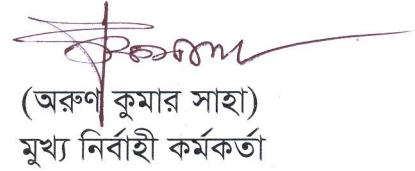 (অরুণ কুমার সাহা)
মুখ্য নির্বাহী কর্মকর্তা